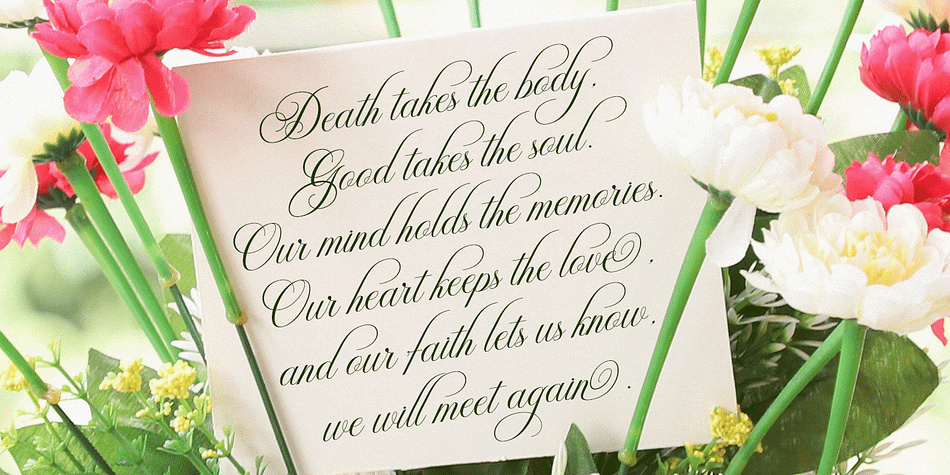 Death takes the body.
Good takes the soul.
Our mind holds the memories.
Our heart keeps the love .
and our faith lets us know.
we will meet again .